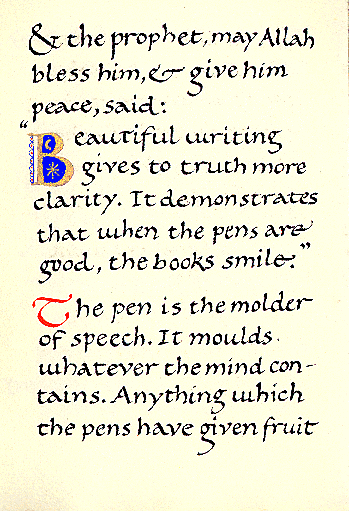 & the prophet, may Allah
bless him, & give him
peace, said:
“Beautiful writing
gives to truth more
clarity. It demonstrates
that when the pens are
good, the books smile.”
The pen is the molder
of speech. It moulds
whatever the mind con-
tains. Anything which
the pens have given fruit